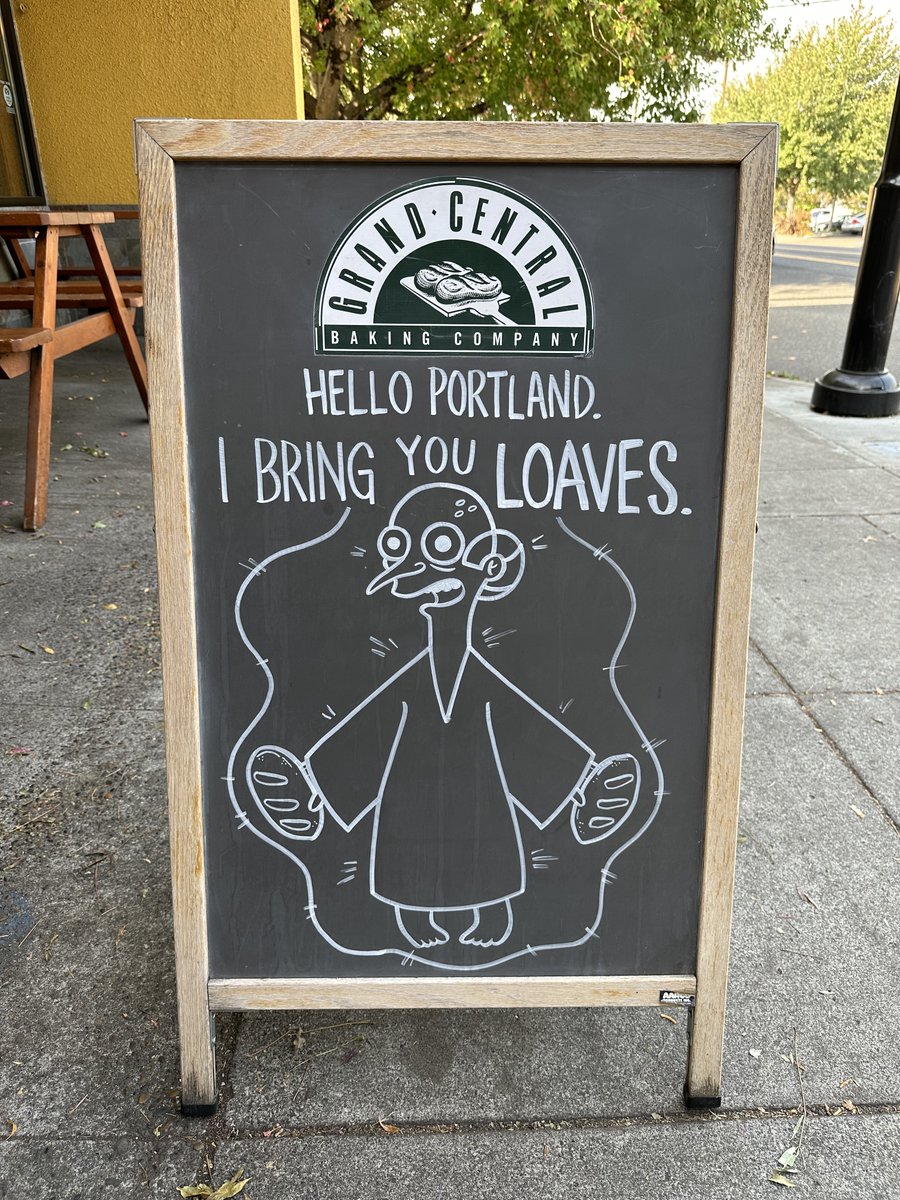 GRAND·CENTRAL
BAKING COMPANY
HELLO PORTLAND.
I BRING YOU LOAVES.